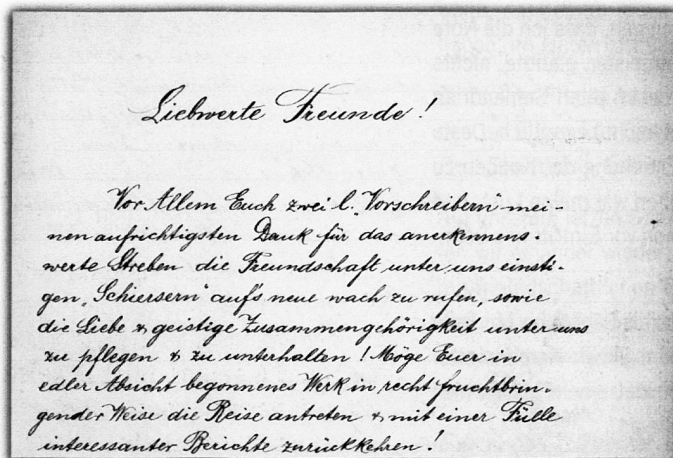 Liebwerte Freunde!
Vor Allem Euch zwei l. „Vorschreibern" mei-
nen aufrichtigsten Dank für das anerkennens-
werte Streben die Freundschaft unter uns einsti-
gen „Schiersern" auf's neue wach zu rufen, sowie
die Liebe & geistige Zusammengehörigkeit unter uns
zu pflegen & zu unterhalten! Möge Euer in
edler Absicht begonnenes Werk in recht fruchtbrin-
gender Weise die Reise antreten & mit einer Fülle
interessanter Berichte zurückkehren!